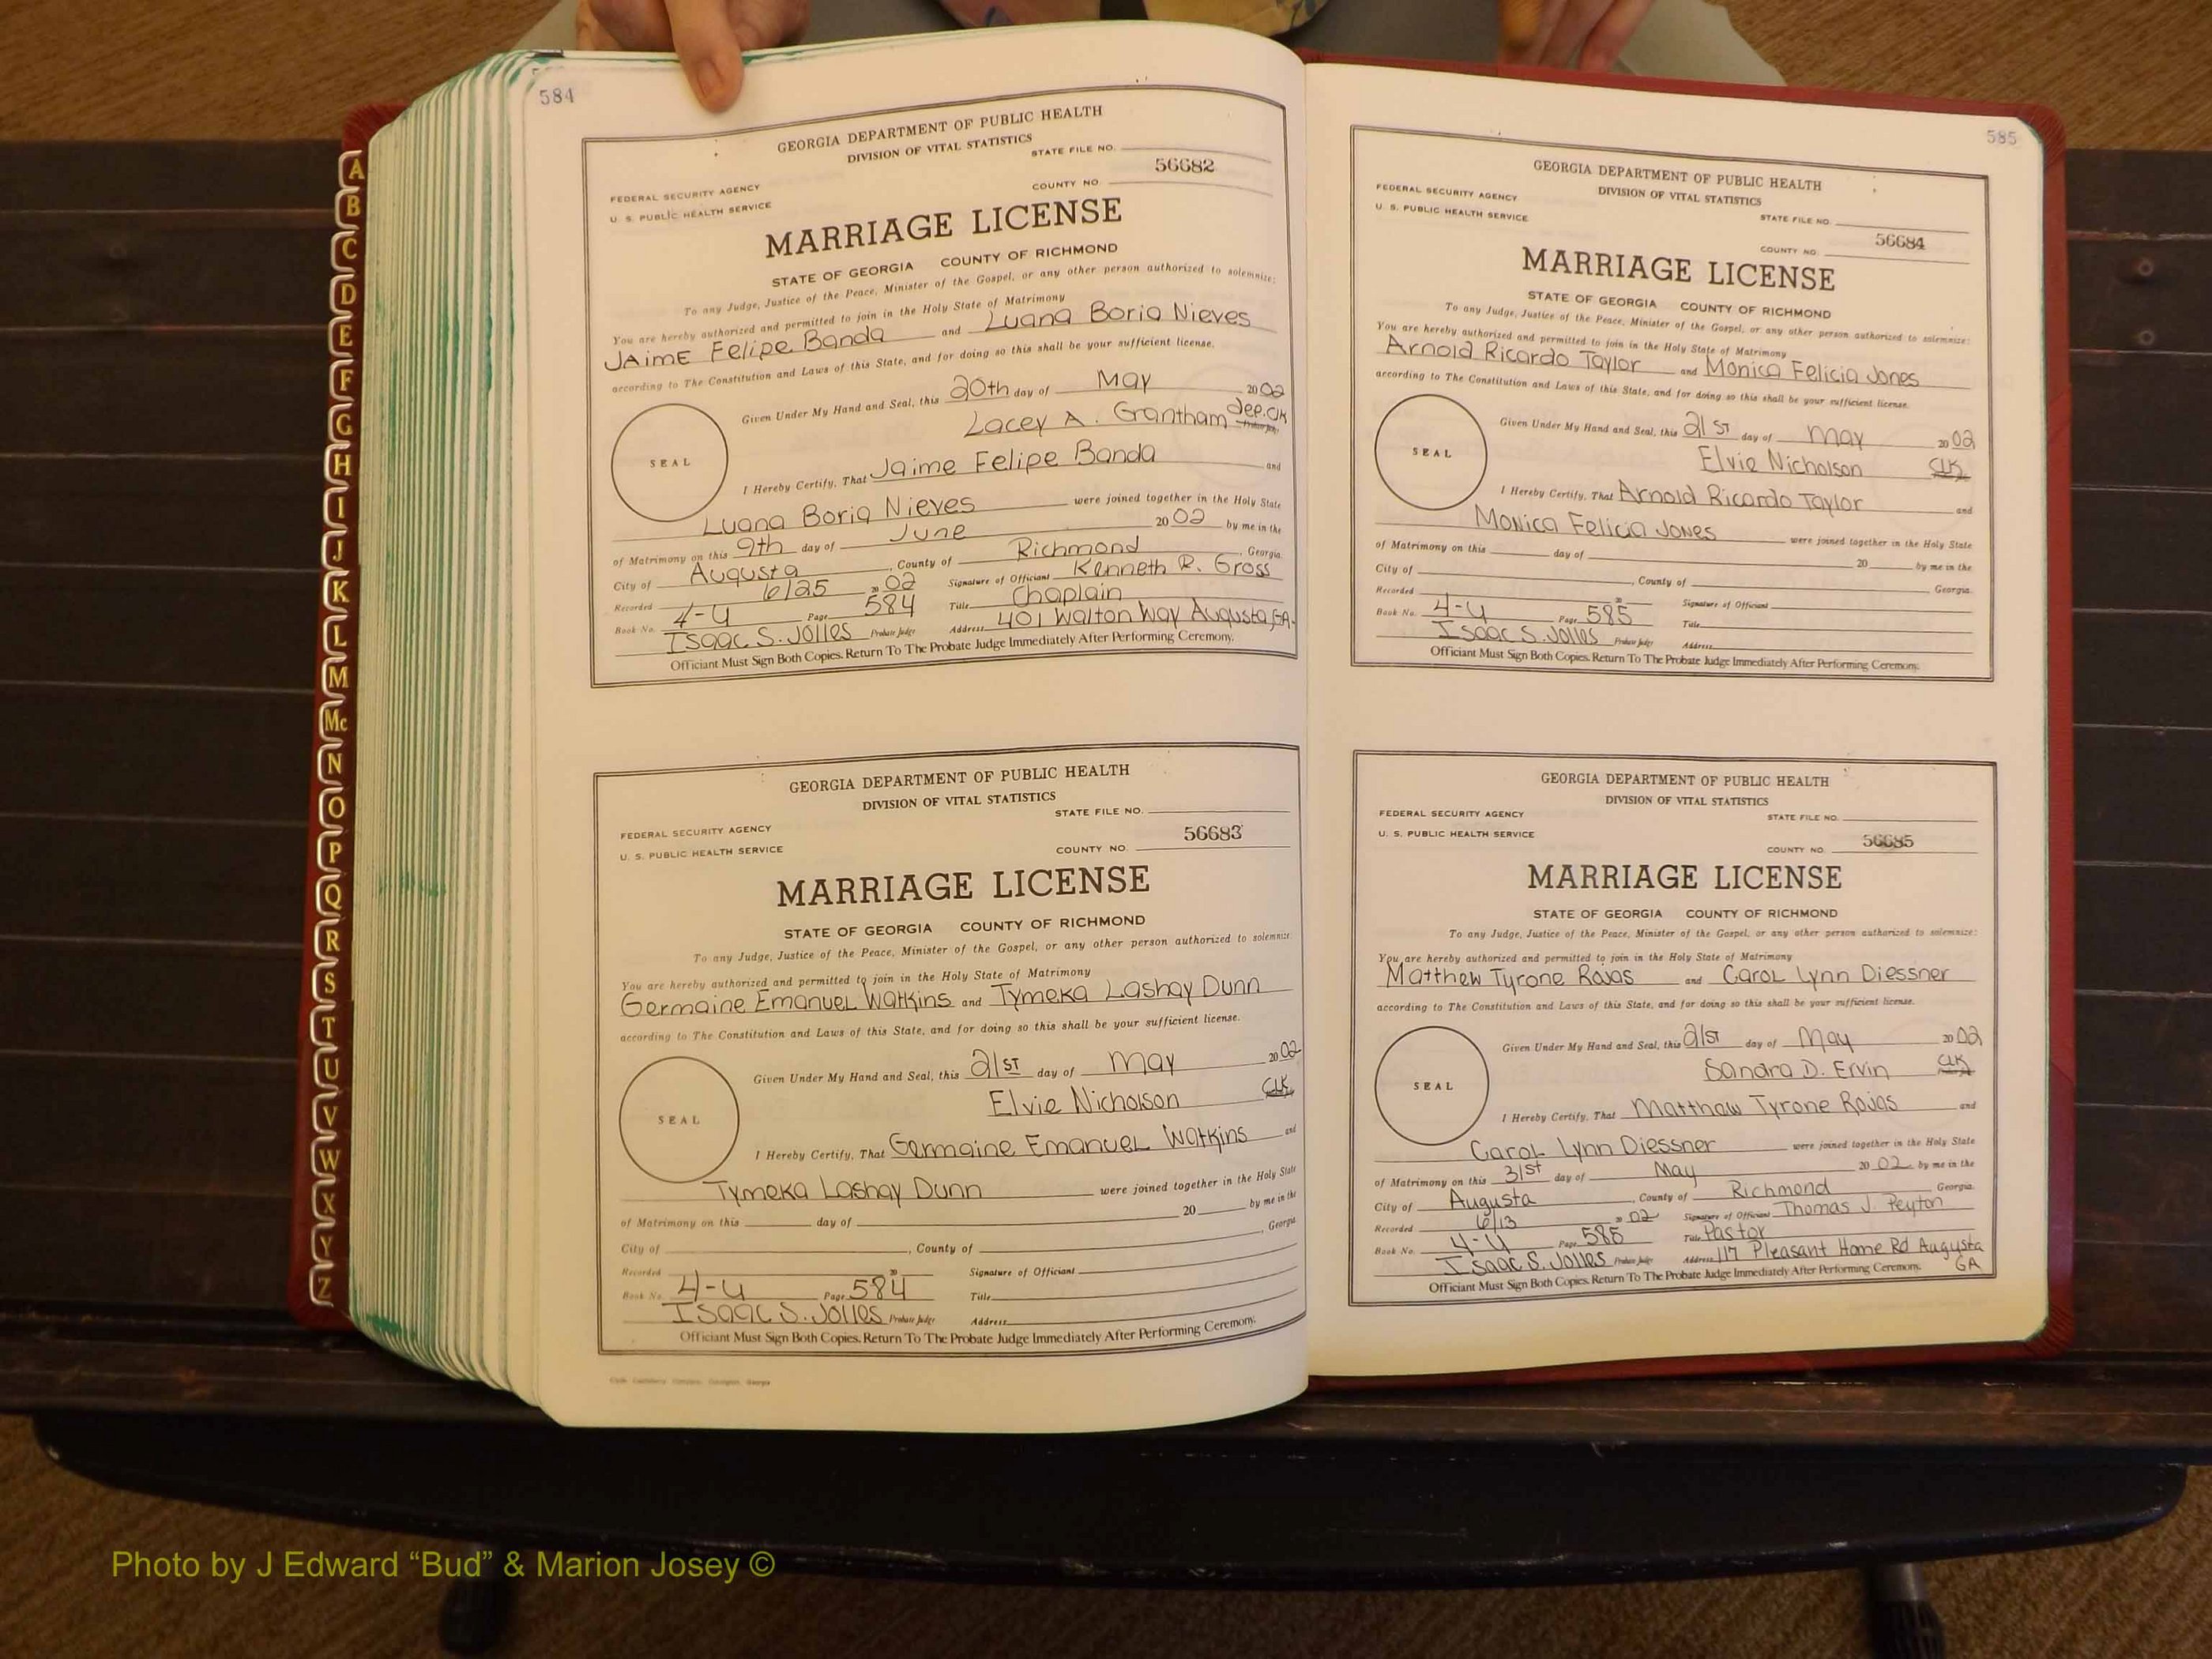 A
B
C
D
E
F
G
H
I
J
K
L
M
Mc
N
O
P
Q
R
S
T
U
V
W
X
Y
Z
584
GEORGIA DEPARTMENT OF PUBLIC HEALTH
DIVISION OF VITAL STATISTICS
STATE FILE NO.
FEDERAL SECURITY AGENCY
U. S. PUBLIC HEALTH SERVICE
COUNTY NO 56682
MARRIAGE LICENSE
STATE OF GEORGIA COUNTY OF RICHMOND
To any Judge, Justice of the Peace, Minister of the Gospel, or any other person authorized to solemnize:
You are hereby authorized and permitted to join in the Holy State of Matrimony
JAIME Felipe Banda and Luana Boria Nieves
according to The Constitution and Laws of this State, and for doing so this shall be your sufficient license.
Given Under My Hand and Seal, this 20th day of May 2002
Lacey A. Grantham dep.clk
SEAL
I Hereby Certify, That Jaime Felipe Banda and
Luana Boria Nieves were joined together in the Holy State
of Matrimony on this 9th day of June 2002 by me in the
City of Augusta, County of Richmond, Georgia.
Recorded 6/25 2002 Signature of Officiant Kenneth R. Gross
Book No. 4-U Page 584 Title Chaplain
Isaac S. Jolles Probate Judge Address 401 Walton Way Augusta, GA.
Officiant Must Sign Both Copies. Return To The Probate Judge Immediately After Performing Ceremony.
GEORGIA DEPARTMENT OF PUBLIC HEALTH
DIVISION OF VITAL STATISTICS
STATE FILE NO.
FEDERAL SECURITY AGENCY
U. S. PUBLIC HEALTH SERVICE
COUNTY NO. 56683
MARRIAGE LICENSE
STATE OF GEORGIA COUNTY OF RICHMOND
To any Judge, Justice of the Peace, Minister of the Gospel, or any other person authorized to solemnize
You are hereby authorized and permitted to join in the Holy State of Matrimony
Germaine Emanuel Watkins and Tymeka Lashay Dunn
according to The Constitution and Laws of this State, and for doing so this shall be your sufficient license.
Given Under My Hand and Seal, this 21st day of May 2002
Elvie Nicholson Clk
SEAL
I Hereby Certify, That Germaine Emanuel Watkins and
Tymeka Lashay Dunn were joined together in the Holy State
of Matrimony on this day of 20 by me in the
City of , County of , Georgia
Recorded 20 Signature of Officiant
Book No. 4-U Page 584 Title
Isaac S. Jolles Probate Judge Address
Officiant Must Sign Both Copies. Return To The Probate Judge Immediately After Performing Ceremony.
585
GEORGIA DEPARTMENT OF PUBLIC HEALTH
DIVISION OF VITAL STATISTICS
FEDERAL SECURITY AGENCY
U. S. PUBLIC HEALTH SERVICE
STATE FILE NO.
COUNTY NO. 56684
MARRIAGE LICENSE
STATE OF GEORGIA COUNTY OF RICHMOND
To any Judge, Justice of the Peace, Minister of the Gospel, or any other person authorized to solemnize:
You are hereby authorized and permitted to join in the Holy State of Matrimony
Arnold Ricardo Taylor and Monica Felicia Jones
according to The Constitution and Laws of this State, and for doing so this shall be your sufficient license.
Given Under My Hand and Seal, this 21st day of May 2002
Elvie Nicholson Clk
SEAL
I Hereby Certify, That Arnold Ricardo Taylor and
Monica Felicia Jones were joined together in the Holy State
of Matrimony on this day of 20 by me in the
City of , County of Georgia.
Recorded 20 Signature of Officiant
Book No. 4-U Page 585 Title
Isaac S. Jolles Probate Judge Address
Officiant Must Sign Both Copies. Return To The Probate Judge Immediately After Performing Ceremony.
GEORGIA DEPARTMENT OF PUBLIC HEALTH
DIVISION OF VITAL STATISTICS
FEDERAL SECURITY AGENCY
STATE FILE NO.
U. S. PUBLIC HEALTH SERVICE
COUNTY NO. 56685
MARRIAGE LICENSE
STATE OF GEORGIA COUNTY OF RICHMOND
To any Judge, Justice of the Peace, Minister of the Gospel, or any other person authorized to solemnize:
You are hereby authorized and permitted to join in the Holy State of Matrimony
Matthew Tyrone Rojas and Carol Lynn Diessner
according to The Constitution and Laws of this State, and for doing so this shall be your sufficient license.
Given Under My Hand and Seal, this 21st day of May 2002
Sandra D. Ervin Clk
SEAL
I Hereby Certify, That Matthew Tyrone Rojas and
Carol Lynn Diessner were joined together in the Holy State
of Matrimony on this 31st day of May 2002 by me in the
City of Augusta, County of Richmond Georgia.
Recorded 6/13 2002 Signature of Officiant Thomas J. Peyton
Book No. 4-U Page 585 Title Pastor
Isaac S. Jolles Probate Judge Address 117 Pleasant Home Rd Augusta GA
Officiant Must Sign Both Copies. Return To The Probate Judge Immediately After Performing Ceremony.
Photo by J Edward “Bud” & Marion Josey ©